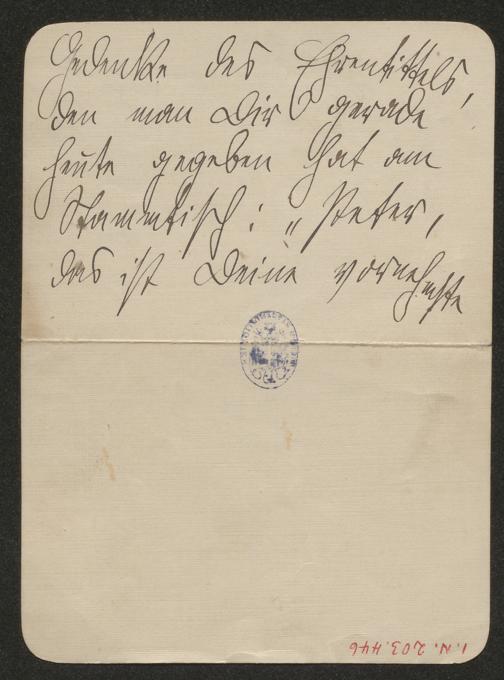 Gedenke des Ehrentittels,
den man Dir gerade
heute gegeben hat am
Stammtisch: „Peter,
das ist Deine vornehmste
I.N. 203.446